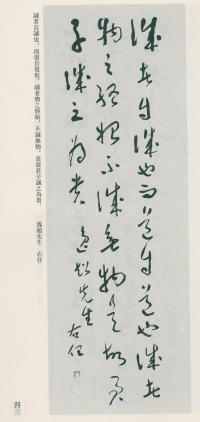 誠者自誠也而道自道也誠者
物之終始不誠無物是故君
子誠之為貴 先生 右任
誠者自誠也，而道自道也，誠者物之終始，不誠無物，是故君子誠之為貴。 先生 右任
四三